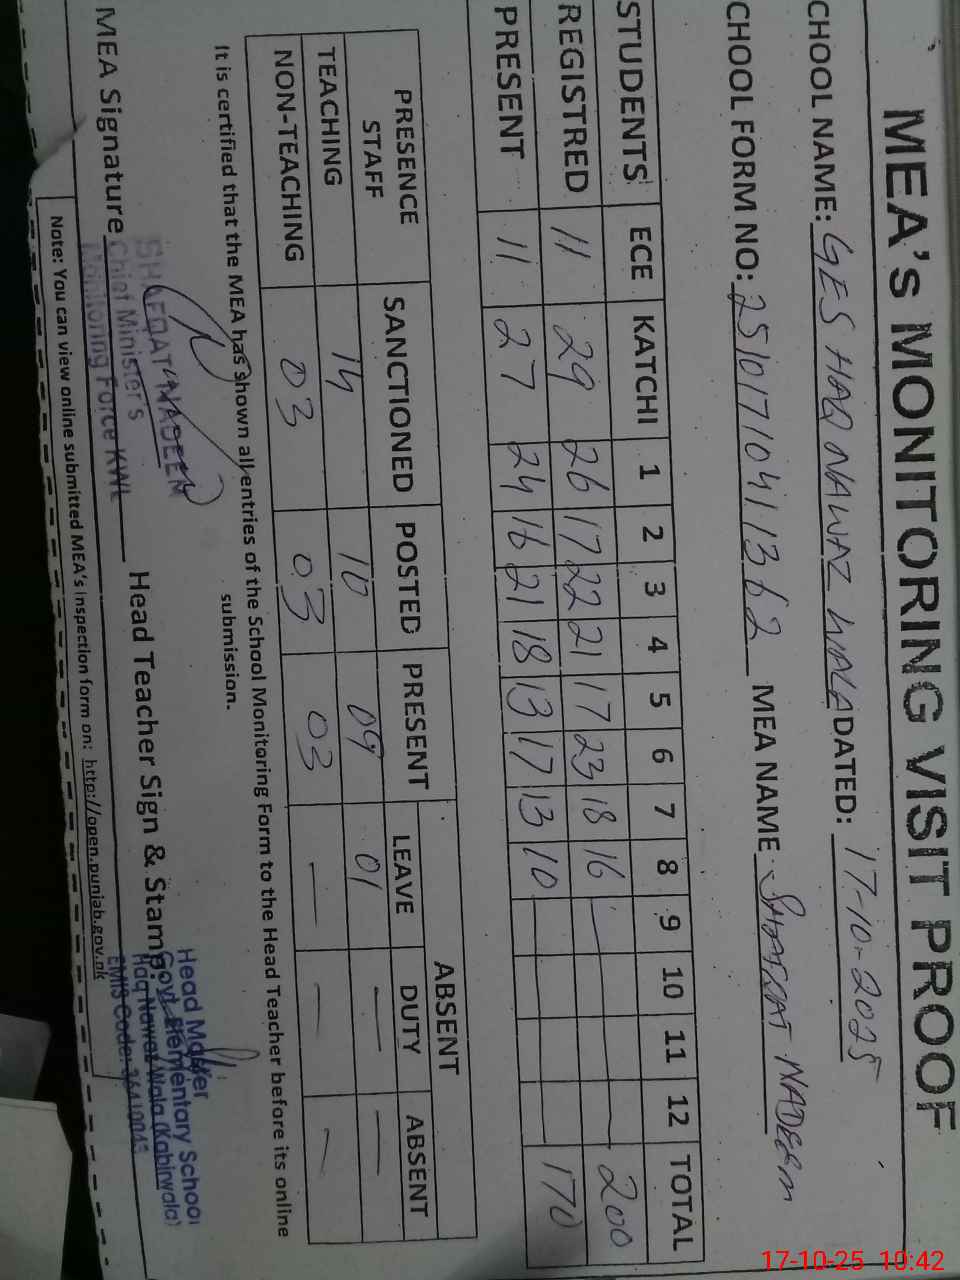 MEA's MONITORING VISIT PROOF
CHOOL NAME: GES HAQ NAWAZ WALA DATED: 17-10-2025
CHOOL FORM NO: 25101710411362 MEA NAME SHAFQAT NADEEM
STUDENTS ECE KATCHI 1 2 3 4 5 6 7 8 9 10 11 12 TOTAL
REGISTRED 11 29 26 17 22 21 17 23 18 16 — — 200
PRESENT 11 27 24 16 21 18 13 17 13 10 — — 170
PRESENCE STAFF SANCTIONED POSTED PRESENT ABSENT
LEAVE DUTY ABSENT
TEACHING 14 10 09 01 — —
NON-TEACHING 03 03 03 — — —
It is certified that the MEA has shown all entries of the School Monitoring Form to the Head Teacher before its online
submission.
MEA Signature Head Teacher Sign & Stamp:
SHAFQAT NADEEM
Chief Minister's
Monitoring Force KWL
Head Master
Govt. Elementary School
Haq Nawaz Wala (Kabirwala)
EMIS Code: 36410043
Note: You can view online submitted MEA's inspection form on: http://open.punjab.gov.pk
17-10-25 10:42